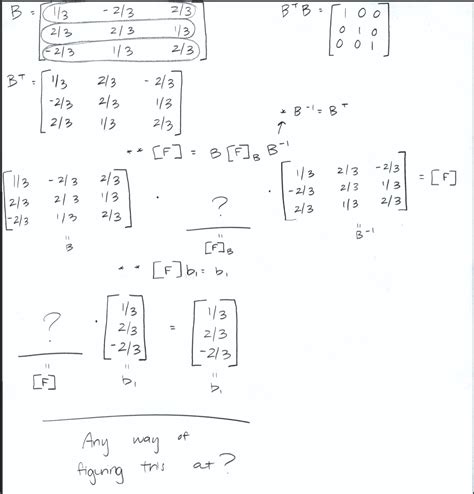 B = [1/3 -2/3 2/3] B^T B = [1 0 0]
[2/3 2/3 1/3] [0 1 0]
[-2/3 1/3 2/3] [0 0 1]
B^T = [1/3 2/3 -2/3]
[-2/3 2/3 1/3]
[2/3 1/3 2/3]
* B^-1 = B^T
** [F] = B [F]_B B^-1
[1/3 -2/3 2/3] · ? · [1/3 2/3 -2/3] = [F]
[2/3 2/3 1/3] [-2/3 2/3 1/3]
[-2/3 1/3 2/3] [2/3 1/3 2/3]
= B = [F]_B = B^-1
** [F] b₁ = b₁
? · [1/3] = [1/3]
[2/3] [2/3]
[-2/3] [-2/3]
= [F] = b₁ = b₁
Any way of
figuring this at?